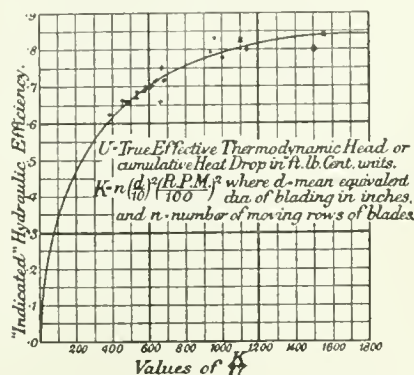 "Indicated" Hydraulic Efficiency.
.9
.8
.7
.6
.5
.4
.3
.2
.1
.0
U-True Effective Thermodynamic Head or
cumulative Heat Drop in ft. lb. Cent. units.
K=n(d/10)²(R.P.M./100)² where d=mean equivalent
dia of blading in inches,
and n=number of moving rows of blades.
200 400 600 800 1000 1200 1400 1600 1800
Values of K/U